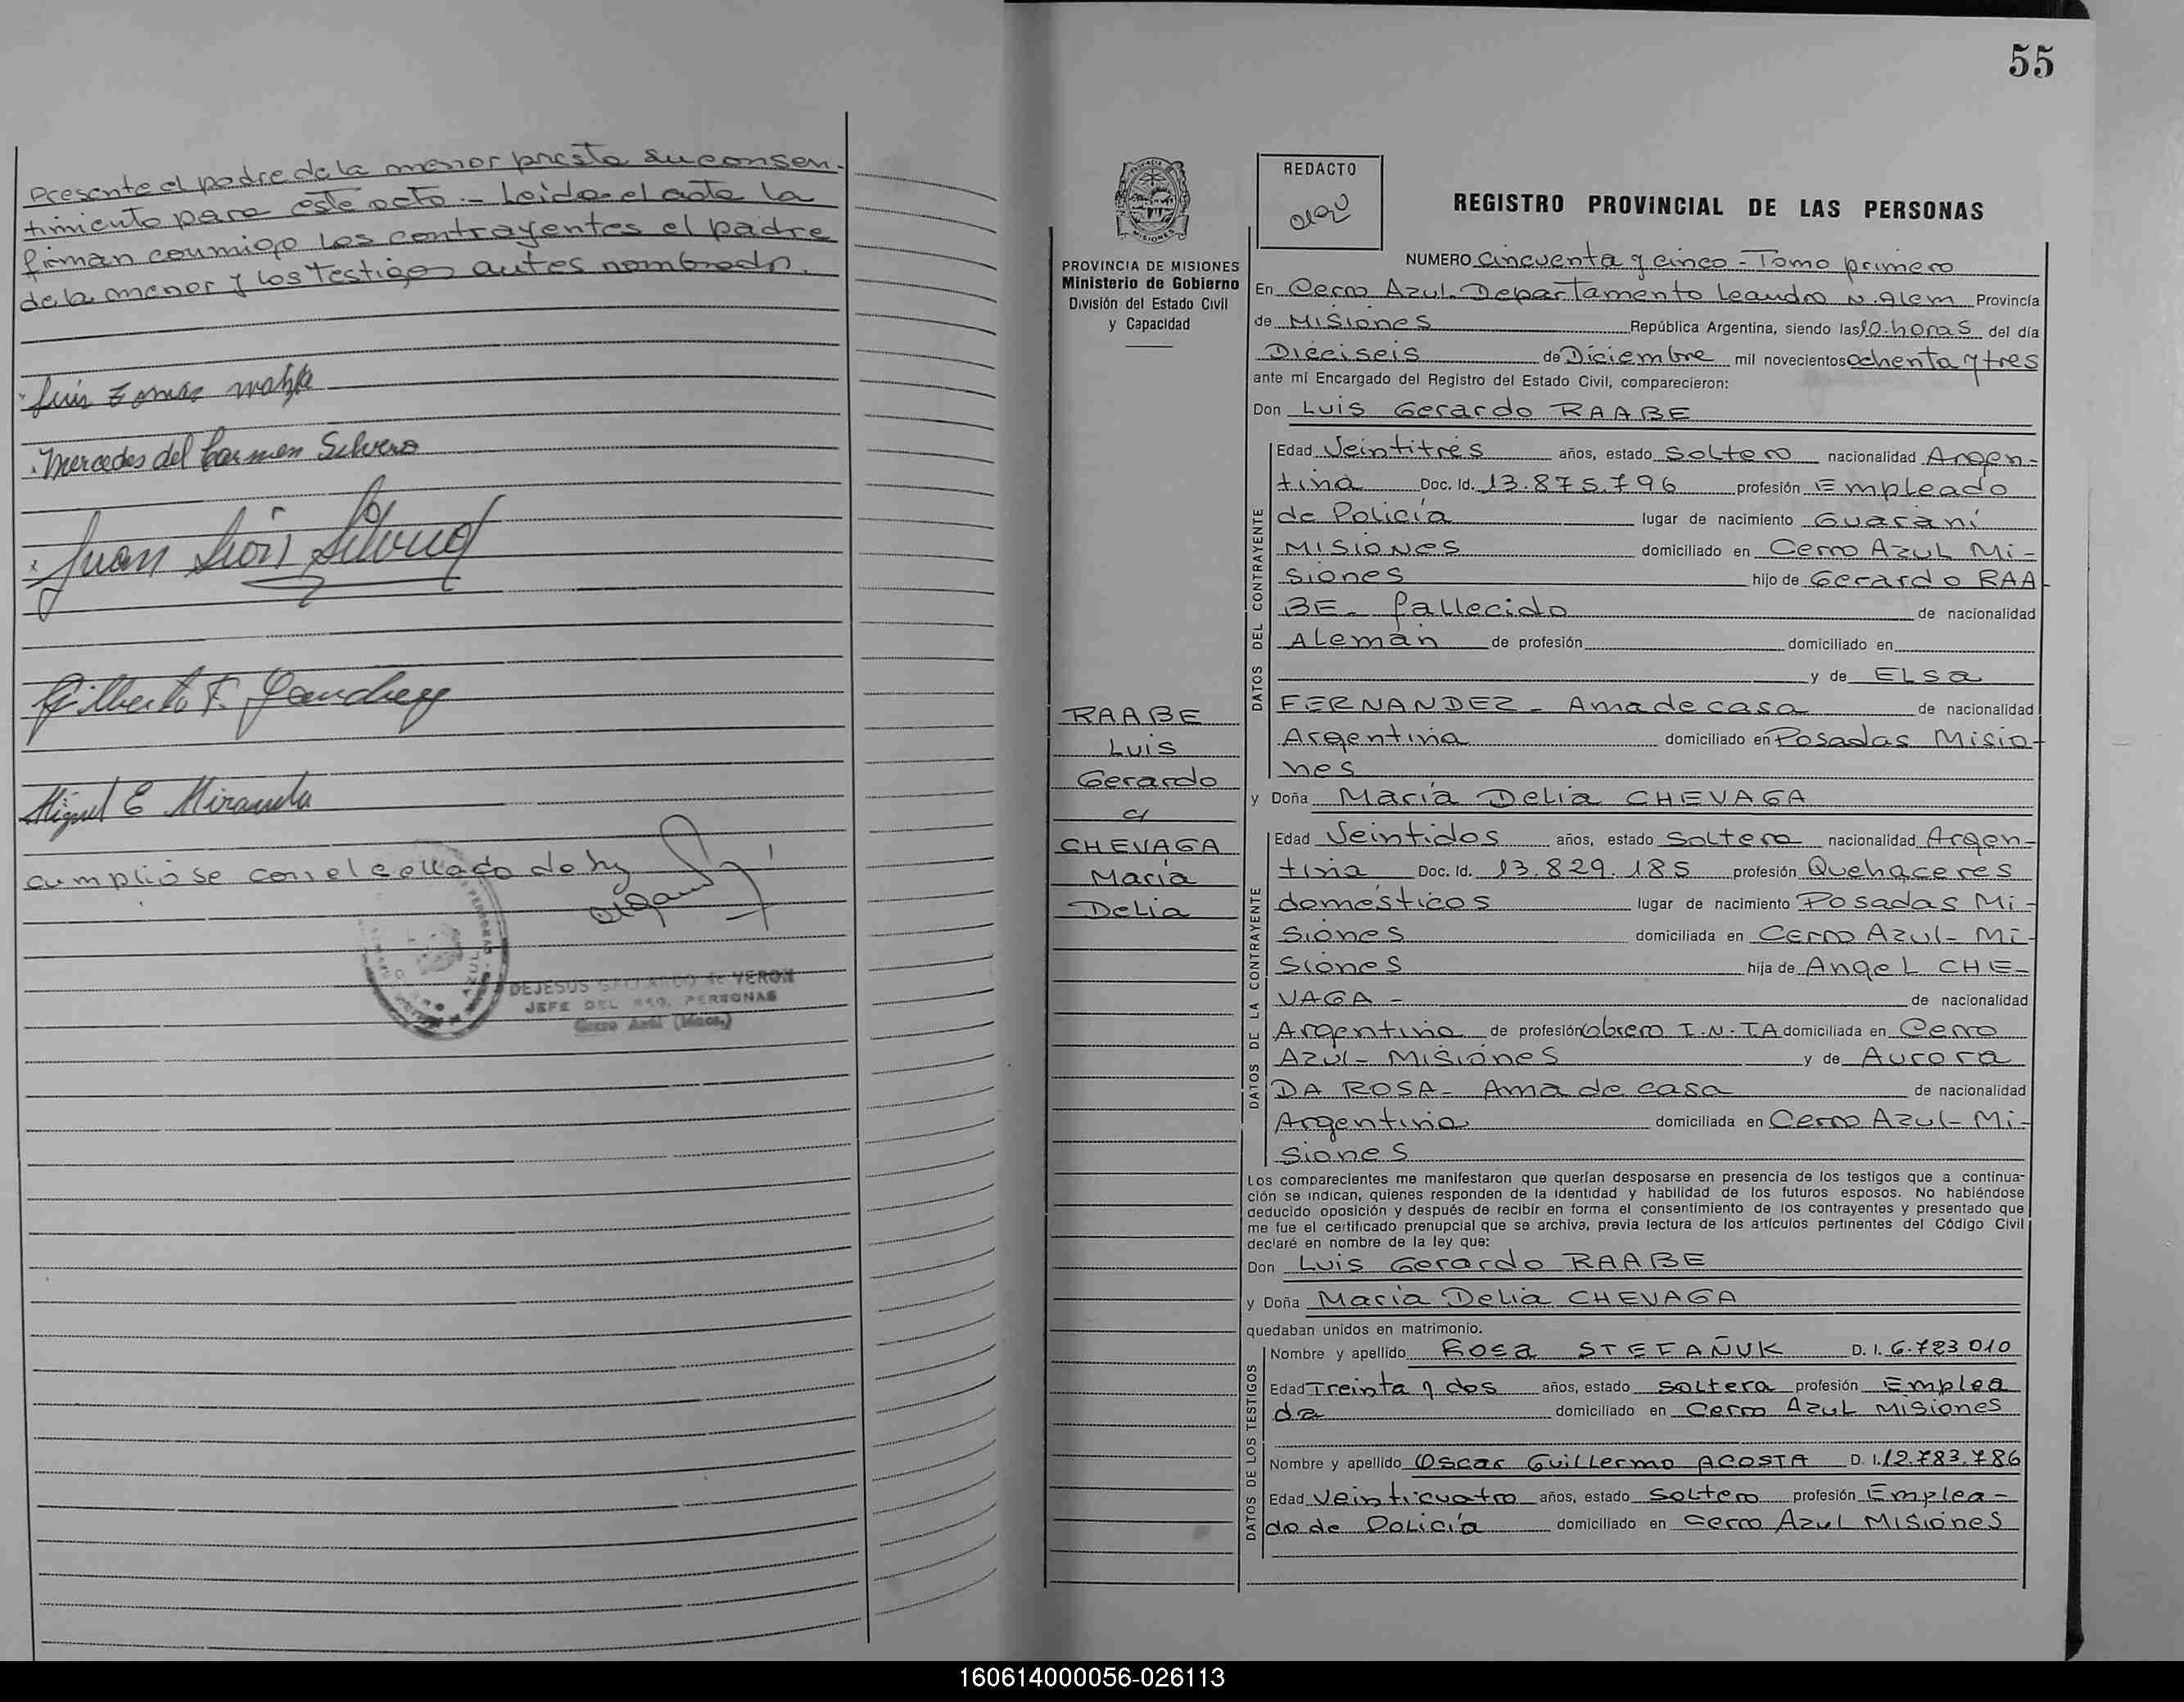 Presente el padre de la menor presta su consen-
timiento para este acto.- Leida el acta la
firman conmigo los contrayentes el padre
de la menor y los testigos antes nombrados.
Luis
Mercedes del Carmen Silvero
Juan Silvero
Gilberto F.
Miguel E Miranda
cumplió se con el sellado de ley
DEJESUS GALLARDO de VERON
JEFE DEL REG. PERSONAS
Cerro Azul (Mnes.)
55
PROVINCIA DE MISIONES
Ministerio de Gobierno
División del Estado Civil
y Capacidad
RAABE
Luis
Gerardo
c/
CHEVAGA
María
Delia
REDACTO
REGISTRO PROVINCIAL DE LAS PERSONAS
NUMERO cincuenta y cinco - Tomo primero
En Cerro Azul. Departamento Leandro N. Alem Provincia
de Misiones República Argentina, siendo las 10 horas del día
Dieciseis de Diciembre mil novecientos ochenta y tres
ante mi Encargado del Registro del Estado Civil, comparecieron:
Don Luis Gerardo RAABE
DATOS DEL CONTRAYENTE
Edad Veintitrés años, estado soltero nacionalidad Argen-
tina Doc. Id. 13.875.796 profesión Empleado
de Policía lugar de nacimiento Guaraní
Misiones domiciliado en Cerro Azul Mi-
siones hijo de Gerardo RAA
BE - fallecido de nacionalidad
Alemán de profesión domiciliado en
y de ELSa
FERNANDEZ - Ama de casa de nacionalidad
Argentina domiciliado en Posadas Misio-
nes
y Doña María Delia CHEVAGA
DATOS DE LA CONTRAYENTE
Edad Veintidos años, estado soltera nacionalidad Argen-
tina Doc. Id. 13.829.185 profesión Quehaceres
domésticos lugar de nacimiento Posadas Mi-
siones domiciliada en Cerro Azul- Mi-
siones hija de Angel CHE-
VAGA - de nacionalidad
Argentina de profesión obrero I.N.T.A domiciliada en Cerro
Azul- Misiones y de Aurora
DA ROSA- Ama de casa de nacionalidad
Argentina domiciliada en Cerro Azul- Mi-
siones
Los comparecientes me manifestaron que querían desposarse en presencia de los testigos que a continua-
ción se indican, quienes responden de la identidad y habilidad de los futuros esposos. No habiéndose
deducido oposición y después de recibir en forma el consentimiento de los contrayentes y presentado que
me fue el certificado prenupcial que se archiva, previa lectura de los artículos pertinentes del Código Civil
declaré en nombre de la ley que:
Don Luis Gerardo RAABE
y Doña María Delia CHEVAGA
quedaban unidos en matrimonio.
DATOS DE LOS TESTIGOS
Nombre y apellido Rosa STEFAÑUK D. I. 6.723 010
Edad Treinta y dos años, estado soltera profesión Emplea
da domiciliado en Cerro Azul Misiones
Nombre y apellido Oscar Guillermo ACOSTA D. I. 12.783.786
Edad Veinticuatro años, estado soltero profesión Emplea-
do de Policía domiciliado en Cerro Azul Misiones
160614000056-026113